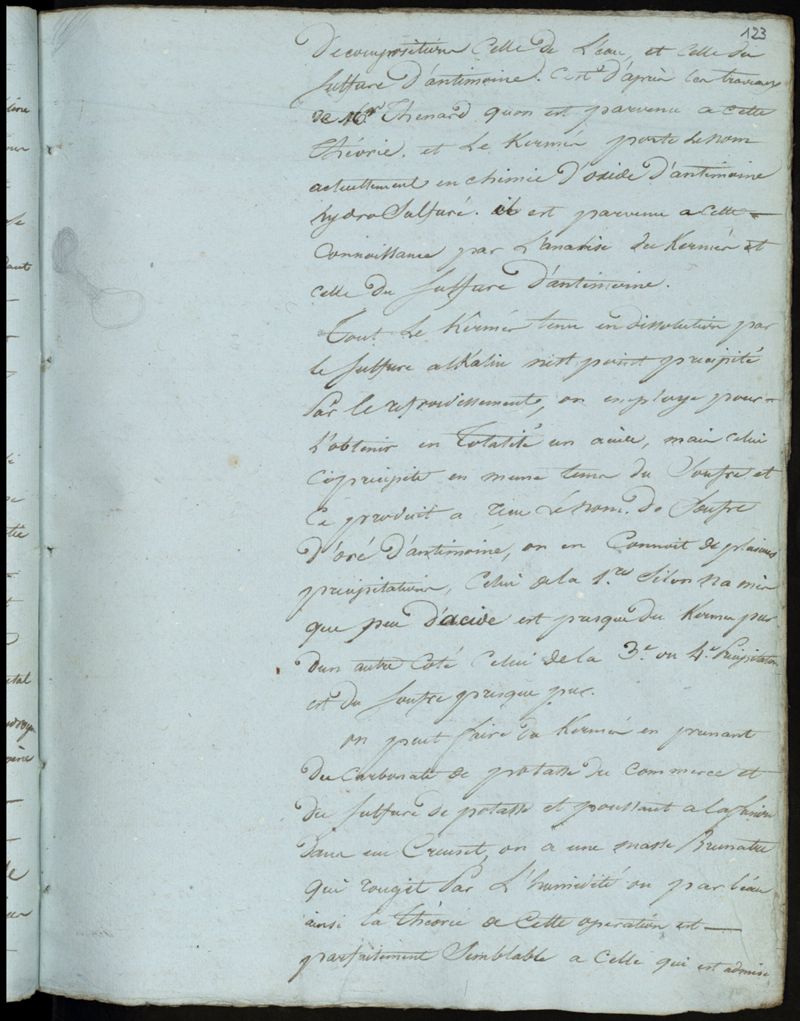 123
Decomposition Celle de L'eau, et celle du
Sulfure D'antimoine. C'est d'après les travaux
de Mr Thenard quon est parvenu a cette
théorie. et Le Kermès porte Le nom
actuellement en chimie D'oxide D'antimoine
hydro Sulfuré. il est parvenu a cette
Connoissance par L'analise du Kermès et
celle du Sulfure D'antimoine.
Tout Le Kermès tenu en dissolution par
le Sulfure alkalin n'est point précipité
Par le refroidissement, on employe pour
L'obtenir en Totalité un acide, mais celui
ci précipite en meme tems du Soufre et
Ce produit a recu Le nom de Soufre
D'oré D'antimoine, on en Connoit de plusieurs
précipitations, Celui de la 1.re Si lon na mis
que peu D'acide est presque du Kermes pur
dun autre Coté Celui de la 3.e ou 4.e Précipitation
est du Soufre presque pur.
on peut faire du Kermès en prenant
du Carbonate de potasse du Commerce et
du Sulfure de potasse et poussant a la fusion
dans un Creuset, on a une masse Brunatre
qui rougit Par L'humidité ou par l'eau
ainsi la théorie de Cette operation est
parfaitement Semblable a Celle qui est admise